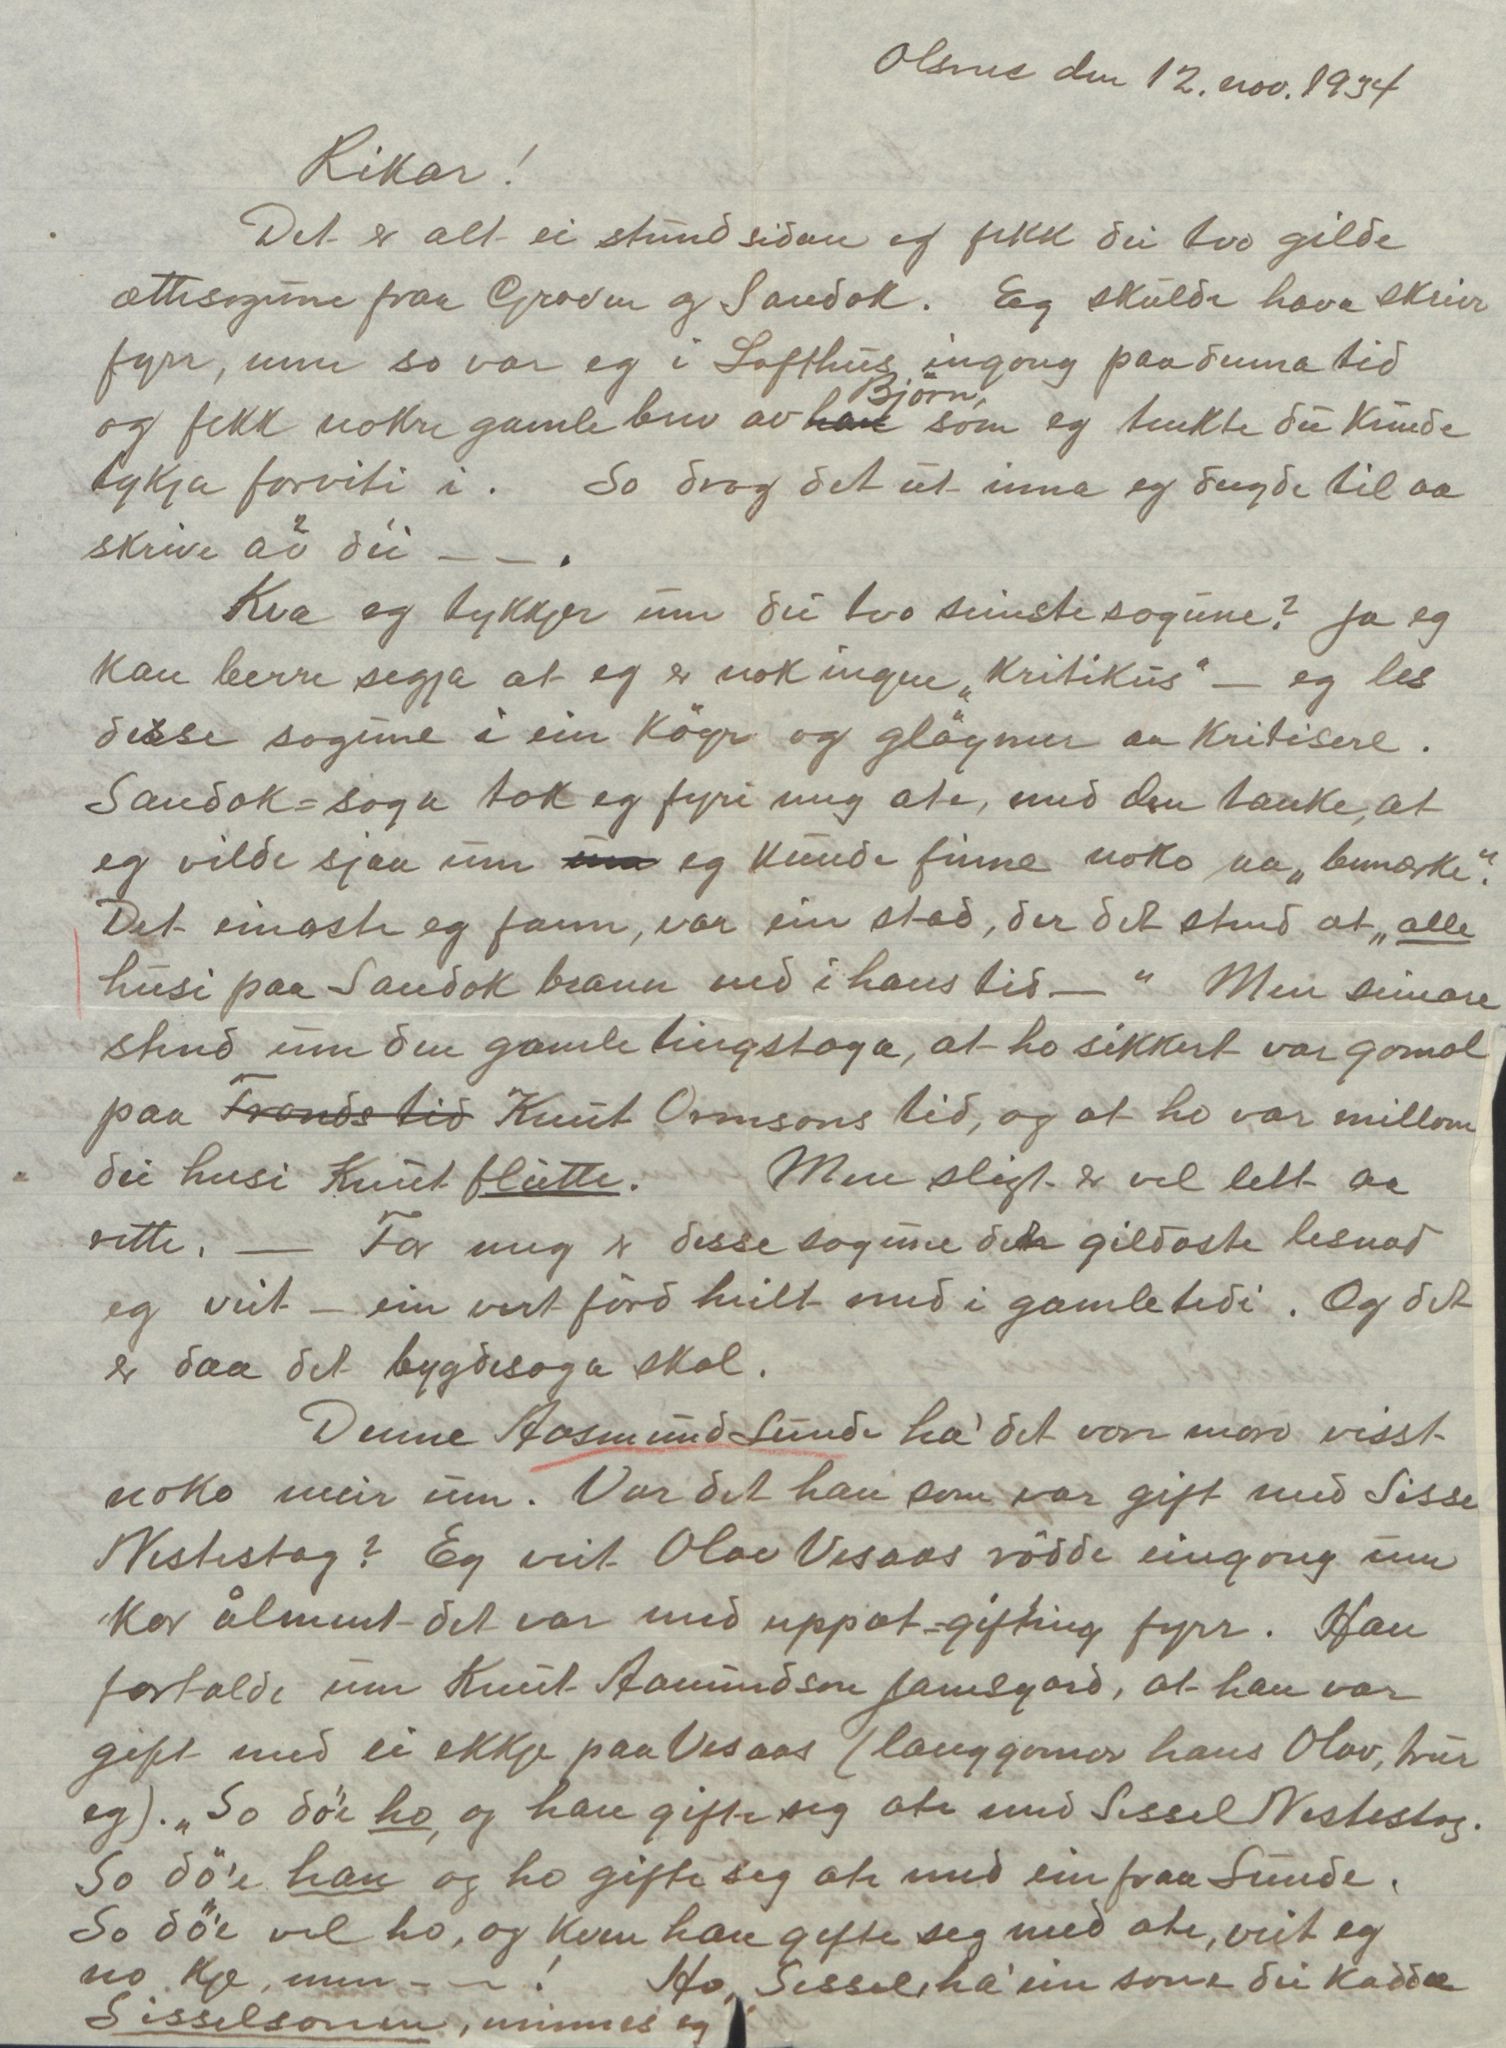 Olsnes den 12. nov. 1934
Rikar!
Det er alt ei stund sidan eg fekk dei two gilde
ættesogune fraa Groven og Sandok. Eg skulde hava skrive
fyrr, men so var eg i Lofthus ingong paa denna tid
og fekk nokre gamle brev av han Björn, som eg tenkte du kunde
tykja forviti i. So drog det ut inna eg dugde til aa
skrive av dei — — .
Kva eg tykkjer um dei two seinste sogune? Ja eg
kan berre segja at eg er nok ingen „kritikus“ — eg les
desse sogune i ein köyr og gläymer aa kritisere.
Sandok=soga tok eg fyri meg ate, med den tanke, at
eg vilde sjaa um um eg kunde finne noko aa „bemærke“.
Det einaste eg fann, var ein stad, der det stend at „alle
husi paa Sandok brann ned i hans tid — “ Men seinare
stend um den gamle tingstoga, at ho sikkert var gomol
paa Tronds tid Knut Ormsons tid, og at ho var millom
dei husi Knut flutte. Men sligt er vel lett aa
rette. — For meg er desse sogune den gildaste lesnad
eg veit — ein vert förd heilt ned i gamle tidi. Og det
er daa det bygdesoga skal.
Denne Aasmund Sunde ha' det vore moro visst
noko meir um. Var det han som var gift med Sisse
Nestestog? Eg veit Olav Vesaas rödde eingong um
kor ålment det var med uppat=gifting fyrr. Han
fortalde um Knut Aamundson Jamsgard, at han var
gift med ei ekkje paa Vesaas (langgomor hans Olav, trur
eg). „So dö'e ho, og han gifte seg ate med Sissel Nestestog.
So dö'e han og ho gifte seg ate med ein fraa Sunde.
So dö'e vel ho, og kven han gifte seg med ate, veit eg
no kje, men — — ! Ho, Sissel, ha' ein sone dei kadda
Sisselsonen, minnes eg